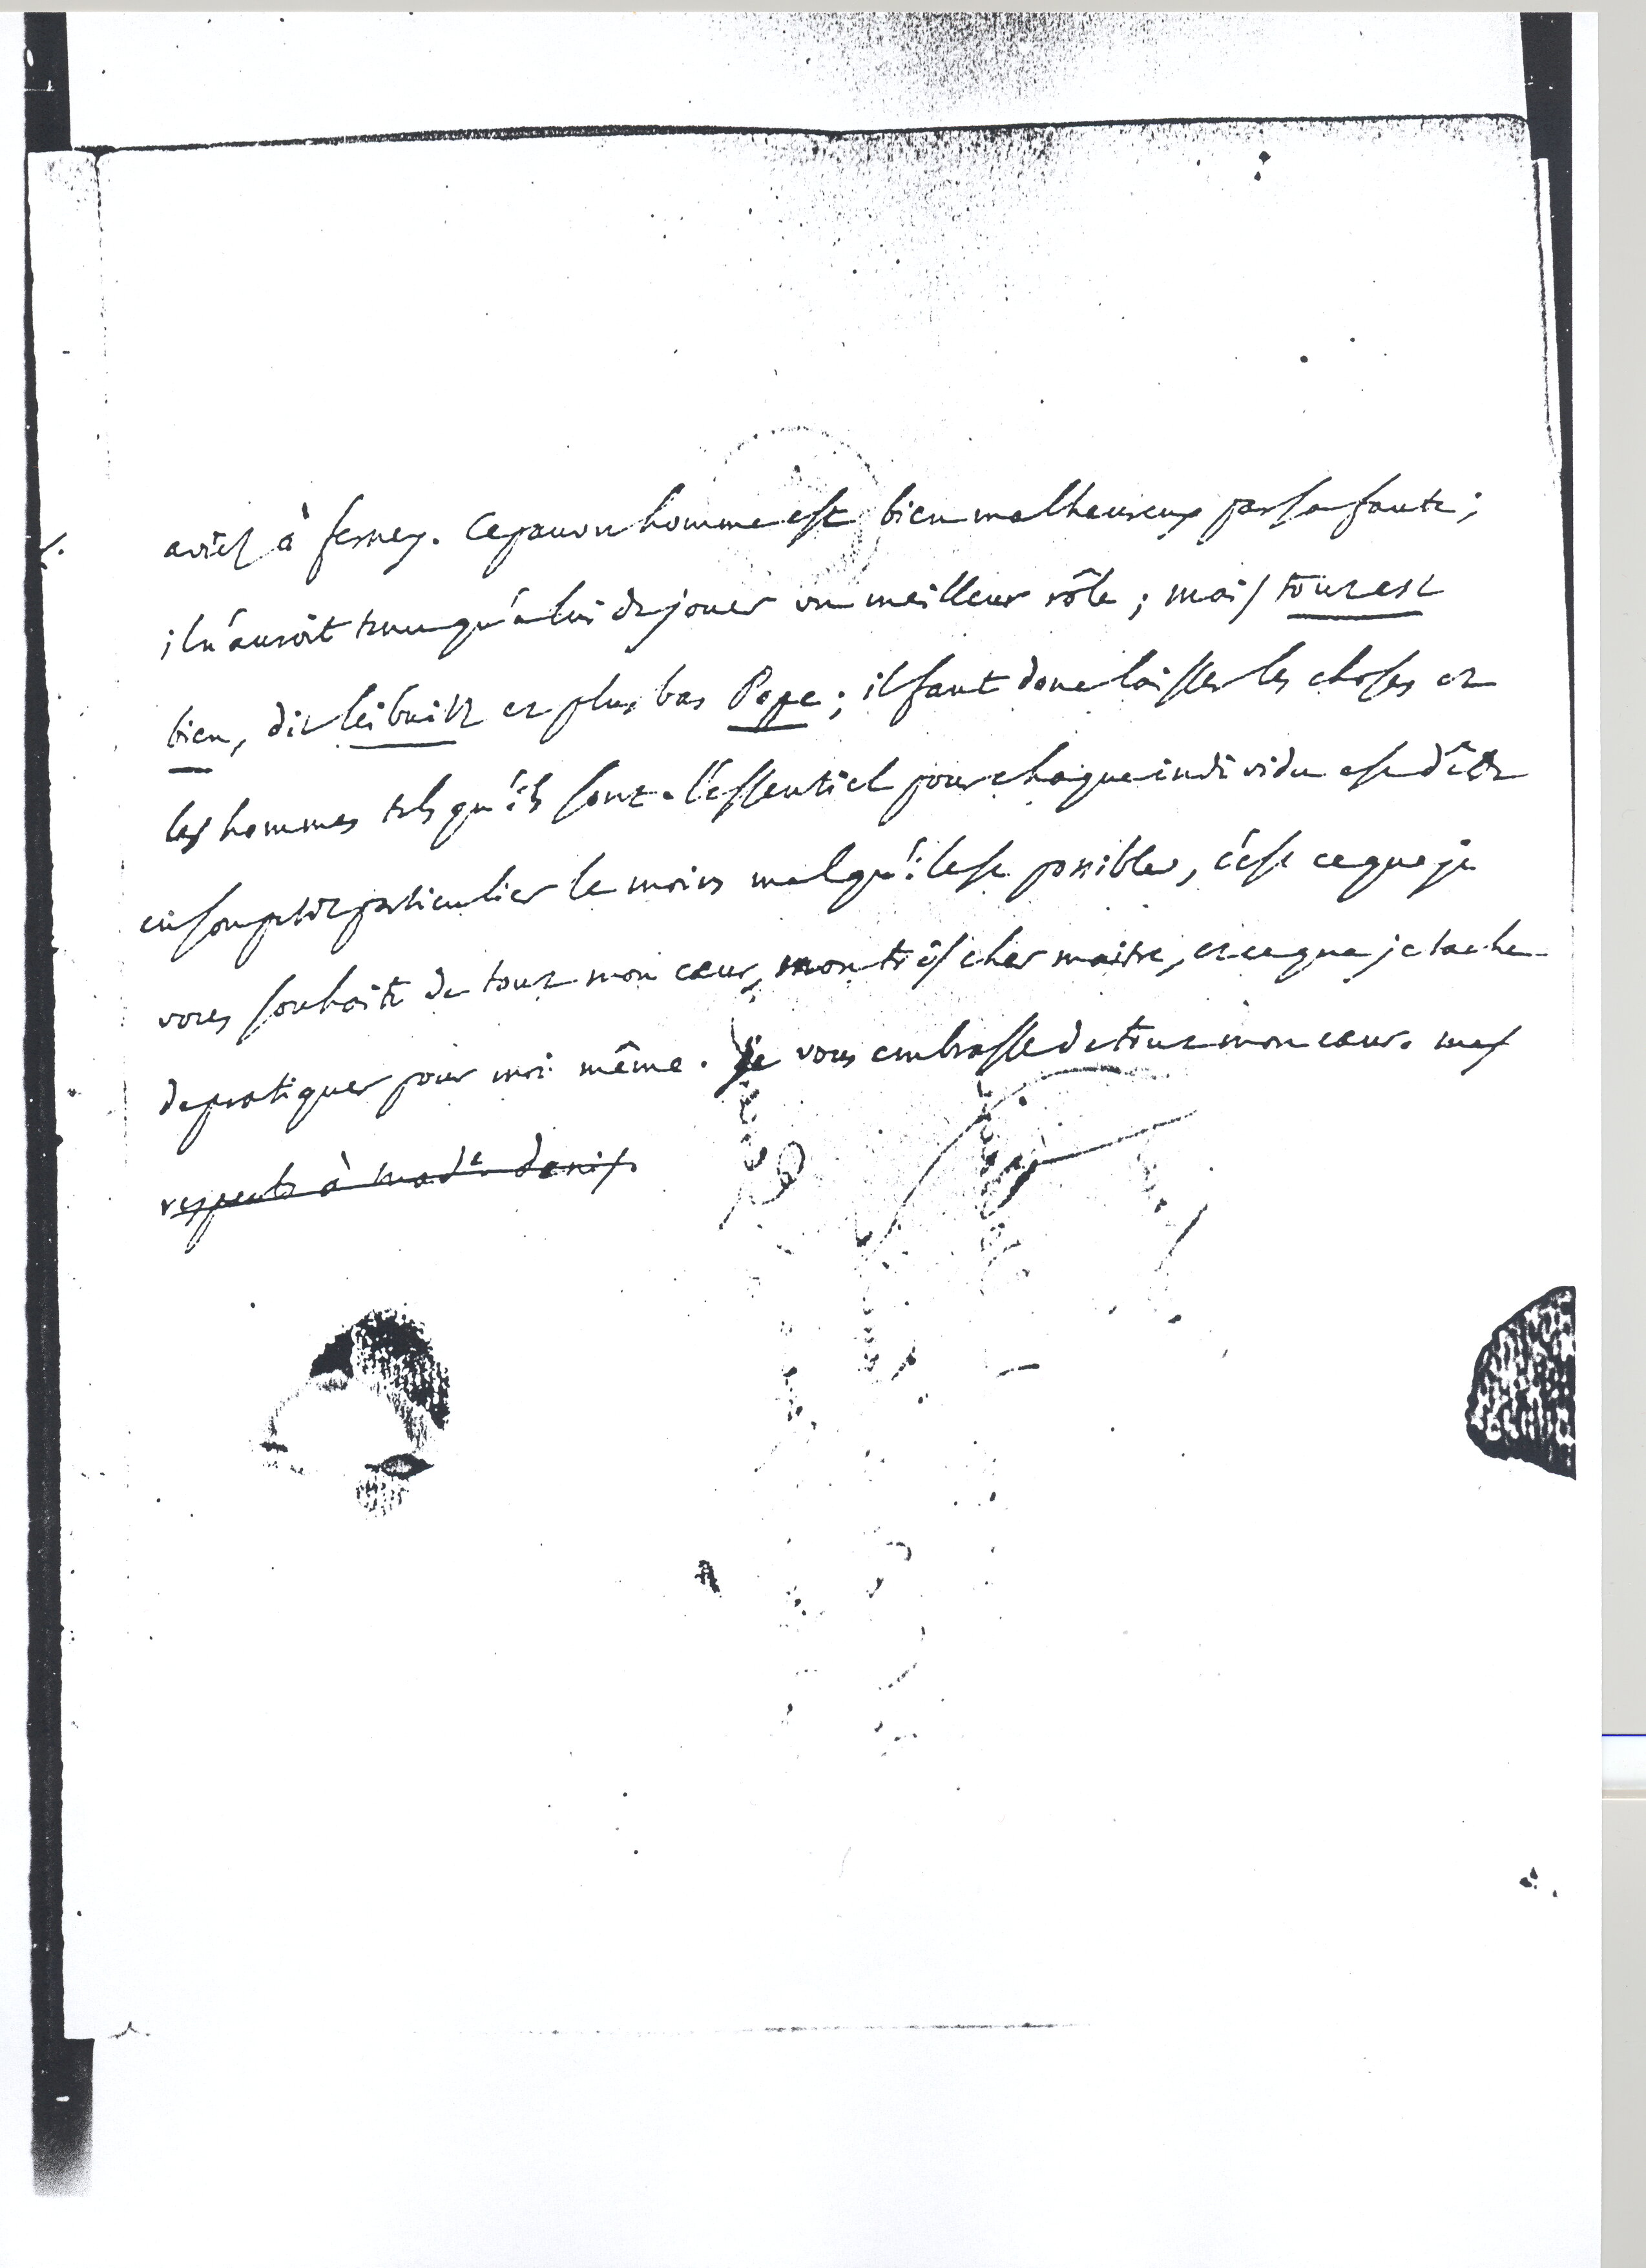 avril à ferney. Ce pauvre homme est bien malheureux par sa faute;
il n'auroit tenu qu'à lui de jouer un meilleur rôle; mais tout est
bien, dit leibnitz et plus bas Pope; il faut donc laisser les choses et
les hommes tels qu'ils sont. l'essentiel pour chaque individu est d'être
en son petit particulier le moins mal qu'il est possible, c'est ce que je
vous souhaite de tout mon cœur, mon très cher maitre, et ce que je tache
de pratiquer pour moi même. Je vous embrasse de tout mon cœur. mes
respects à made denis.